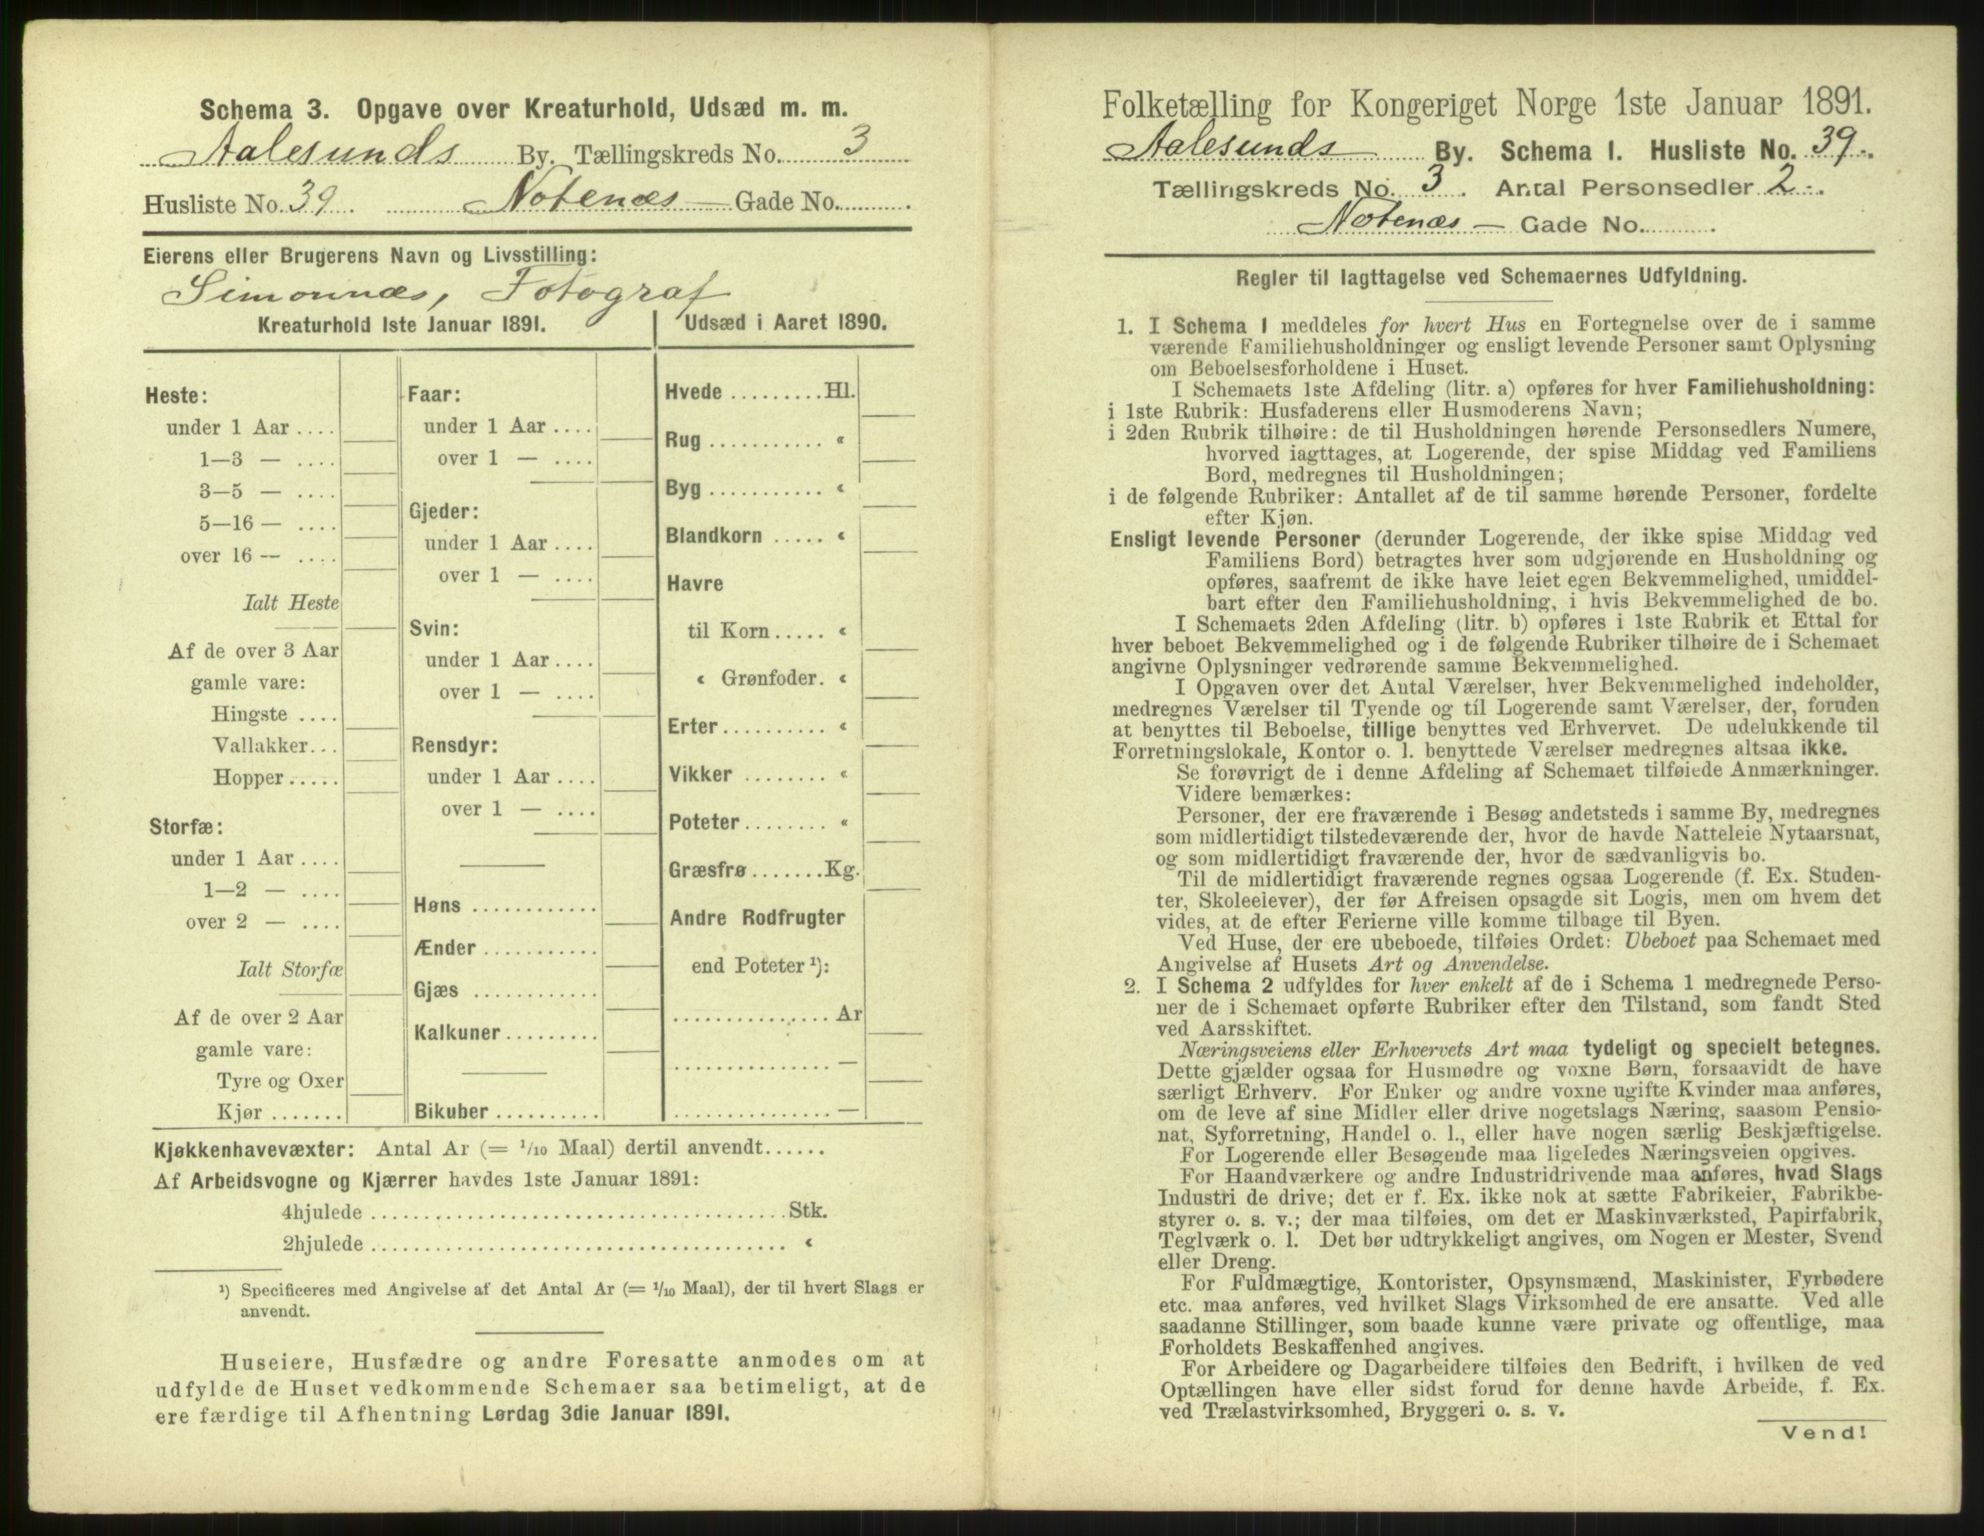 Schema 3. Opgave over Kreaturhold, Udsæd m. m.
Aalesunds By. Tællingskreds No. 3
Husliste No. 39. Notenæs — Gade No.
Eierens eller Brugerens Navn og Livsstilling:
Simonnæs, Fotograf
Kreaturhold 1ste Januar 1891.
Heste:
under 1 Aar ....
1—3 — ....
3—5 — ....
5—16 — ....
over 16 — ....
Ialt Heste
Af de over 3 Aar
gamle vare:
Hingste ....
Vallakker...
Hopper.....
Storfæ:
under 1 Aar ....
1—2 — ....
over 2 — ....
Ialt Storfæ
Af de over 2 Aar
gamle vare:
Tyre og Oxer
Kjør .......
Faar:
under 1 Aar ....
over 1 — ....
Gjeder:
under 1 Aar ....
over 1 — ....
Svin:
under 1 Aar ....
over 1 — ....
Rensdyr:
under 1 Aar ....
over 1 — ....
Høns ............
Ænder ...........
Gjæs ............
Kalkuner.........
Bikuber ..........
Udsæd i Aaret 1890.
Hvede .........Hl.
Rug ........... «
Byg ........... «
Blandkorn ..... «
Havre
til Korn..... «
« Grønfoder. «
Erter.......... «
Vikker ........ «
Poteter........ «
Græsfrø.......Kg.
Andre Rodfrugter
end Poteter ¹):
............... Ar
............... —
............... —
Kjøkkenhavevæxter: Antal Ar (= 1/10 Maal) dertil anvendt......
Af Arbeidsvogne og Kjærrer havdes 1ste Januar 1891:
4hjulede ........................................Stk.
2hjulede ........................................ «
¹) Specificeres med Angivelse af det Antal Ar (= 1/10 Maal), der til hvert Slags er
anvendt.
Huseiere, Husfædre og andre Foresatte anmodes om at
udfylde de Huset vedkommende Schemaer saa betimeligt, at de
ere færdige til Afhentning Lørdag 3die Januar 1891.
Folketælling for Kongeriget Norge 1ste Januar 1891.
Aalesunds By. Schema I. Husliste No. 39.
Tællingskreds No. 3. Antal Personsedler 2.
Notenæs — Gade No.
Regler til Iagttagelse ved Schemaernes Udfyldning.
1. I Schema 1 meddeles for hvert Hus en Fortegnelse over de i samme
værende Familiehusholdninger og ensligt levende Personer samt Oplysning
om Beboelsesforholdene i Huset.
I Schemaets 1ste Afdeling (litr. a) opføres for hver Familiehusholdning:
i 1ste Rubrik: Husfaderens eller Husmoderens Navn;
i 2den Rubrik tilhøire: de til Husholdningen hørende Personsedlers Numere,
hvorved iagttages, at Logerende, der spise Middag ved Familiens
Bord, medregnes til Husholdningen;
i de følgende Rubriker: Antallet af de til samme hørende Personer, fordelte
efter Kjøn.
Ensligt levende Personer (derunder Logerende, der ikke spise Middag ved
Familiens Bord) betragtes hver som udgjørende en Husholdning og
opføres, saafremt de ikke have leiet egen Bekvemmelighed, umiddel-
bart efter den Familiehusholdning, i hvis Bekvemmelighed de bo.
I Schemaets 2den Afdeling (litr. b) opføres i 1ste Rubrik et Ettal for
hver beboet Bekvemmelighed og i de følgende Rubriker tilhøire de i Schemaet
angivne Oplysninger vedrørende samme Bekvemmelighed.
I Opgaven over det Antal Værelser, hver Bekvemmelighed indeholder,
medregnes Værelser til Tyende og til Logerende samt Værelser, der, foruden
at benyttes til Beboelse, tillige benyttes ved Erhvervet. De udelukkende til
Forretningslokale, Kontor o. l. benyttede Værelser medregnes altsaa ikke.
Se forøvrigt de i denne Afdeling af Schemaet tilføiede Anmærkninger.
Videre bemærkes:
Personer, der ere fraværende i Besøg andetsteds i samme By, medregnes
som midlertidigt tilstedeværende der, hvor de havde Natteleie Nytaarsnat,
og som midlertidigt fraværende der, hvor de sædvanligvis bo.
Til de midlertidigt fraværende regnes ogsaa Logerende (f. Ex. Studen-
ter, Skoleelever), der før Afreisen opsagde sit Logis, men om hvem det
vides, at de efter Ferierne ville komme tilbage til Byen.
Ved Huse, der ere ubeboede, tilføies Ordet: Ubeboet paa Schemaet med
Angivelse af Husets Art og Anvendelse.
2. I Schema 2 udfyldes for hver enkelt af de i Schema 1 medregnede Perso-
ner de i Schemaet opførte Rubriker efter den Tilstand, som fandt Sted
ved Aarsskiftet.
Næringsveiens eller Erhvervets Art maa tydeligt og specielt betegnes.
Dette gjælder ogsaa for Husmødre og voxne Børn, forsaavidt de have
særligt Erhverv. For Enker og andre voxne ugifte Kvinder maa anføres,
om de leve af sine Midler eller drive nogetslags Næring, saasom Pensio-
nat, Syforretning, Handel o. l., eller have nogen særlig Beskjæftigelse.
For Logerende eller Besøgende maa ligeledes Næringsveien opgives.
For Haandværkere og andre Industridrivende maa anføres, hvad Slags
Industri de drive; det er f. Ex. ikke nok at sætte Fabrikeier, Fabrikbe-
styrer o. s. v.; der maa tilføies, om det er Maskinværksted, Papirfabrik,
Teglværk o. l. Det bør udtrykkeligt angives, om Nogen er Mester, Svend
eller Dreng.
For Fuldmægtige, Kontorister, Opsynsmænd, Maskinister, Fyrbødere
etc. maa anføres, ved hvilket Slags Virksomhed de ere ansatte. Ved alle
saadanne Stillinger, som baade kunne være private og offentlige, maa
Forholdets Beskaffenhed angives.
For Arbeidere og Dagarbeidere tilføies den Bedrift, i hvilken de ved
Optællingen have eller sidst forud for denne havde Arbeide, f. Ex.
ved Trælastvirksomhed, Bryggeri o. s. v.
Vend!